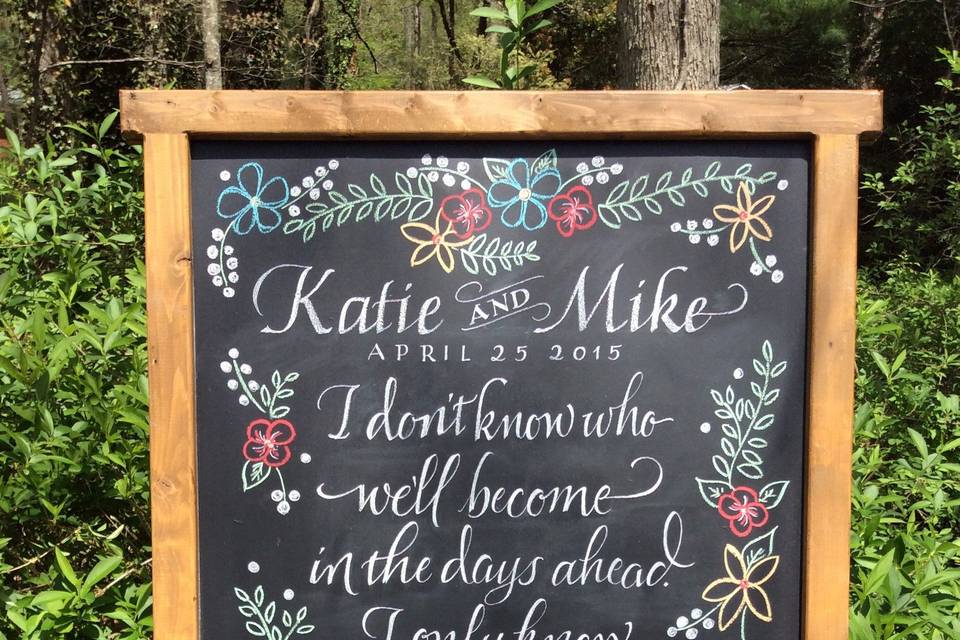 Katie AND Mike
APRIL 25 2015
I don't know who
we'll become
in the days ahead.
I only know